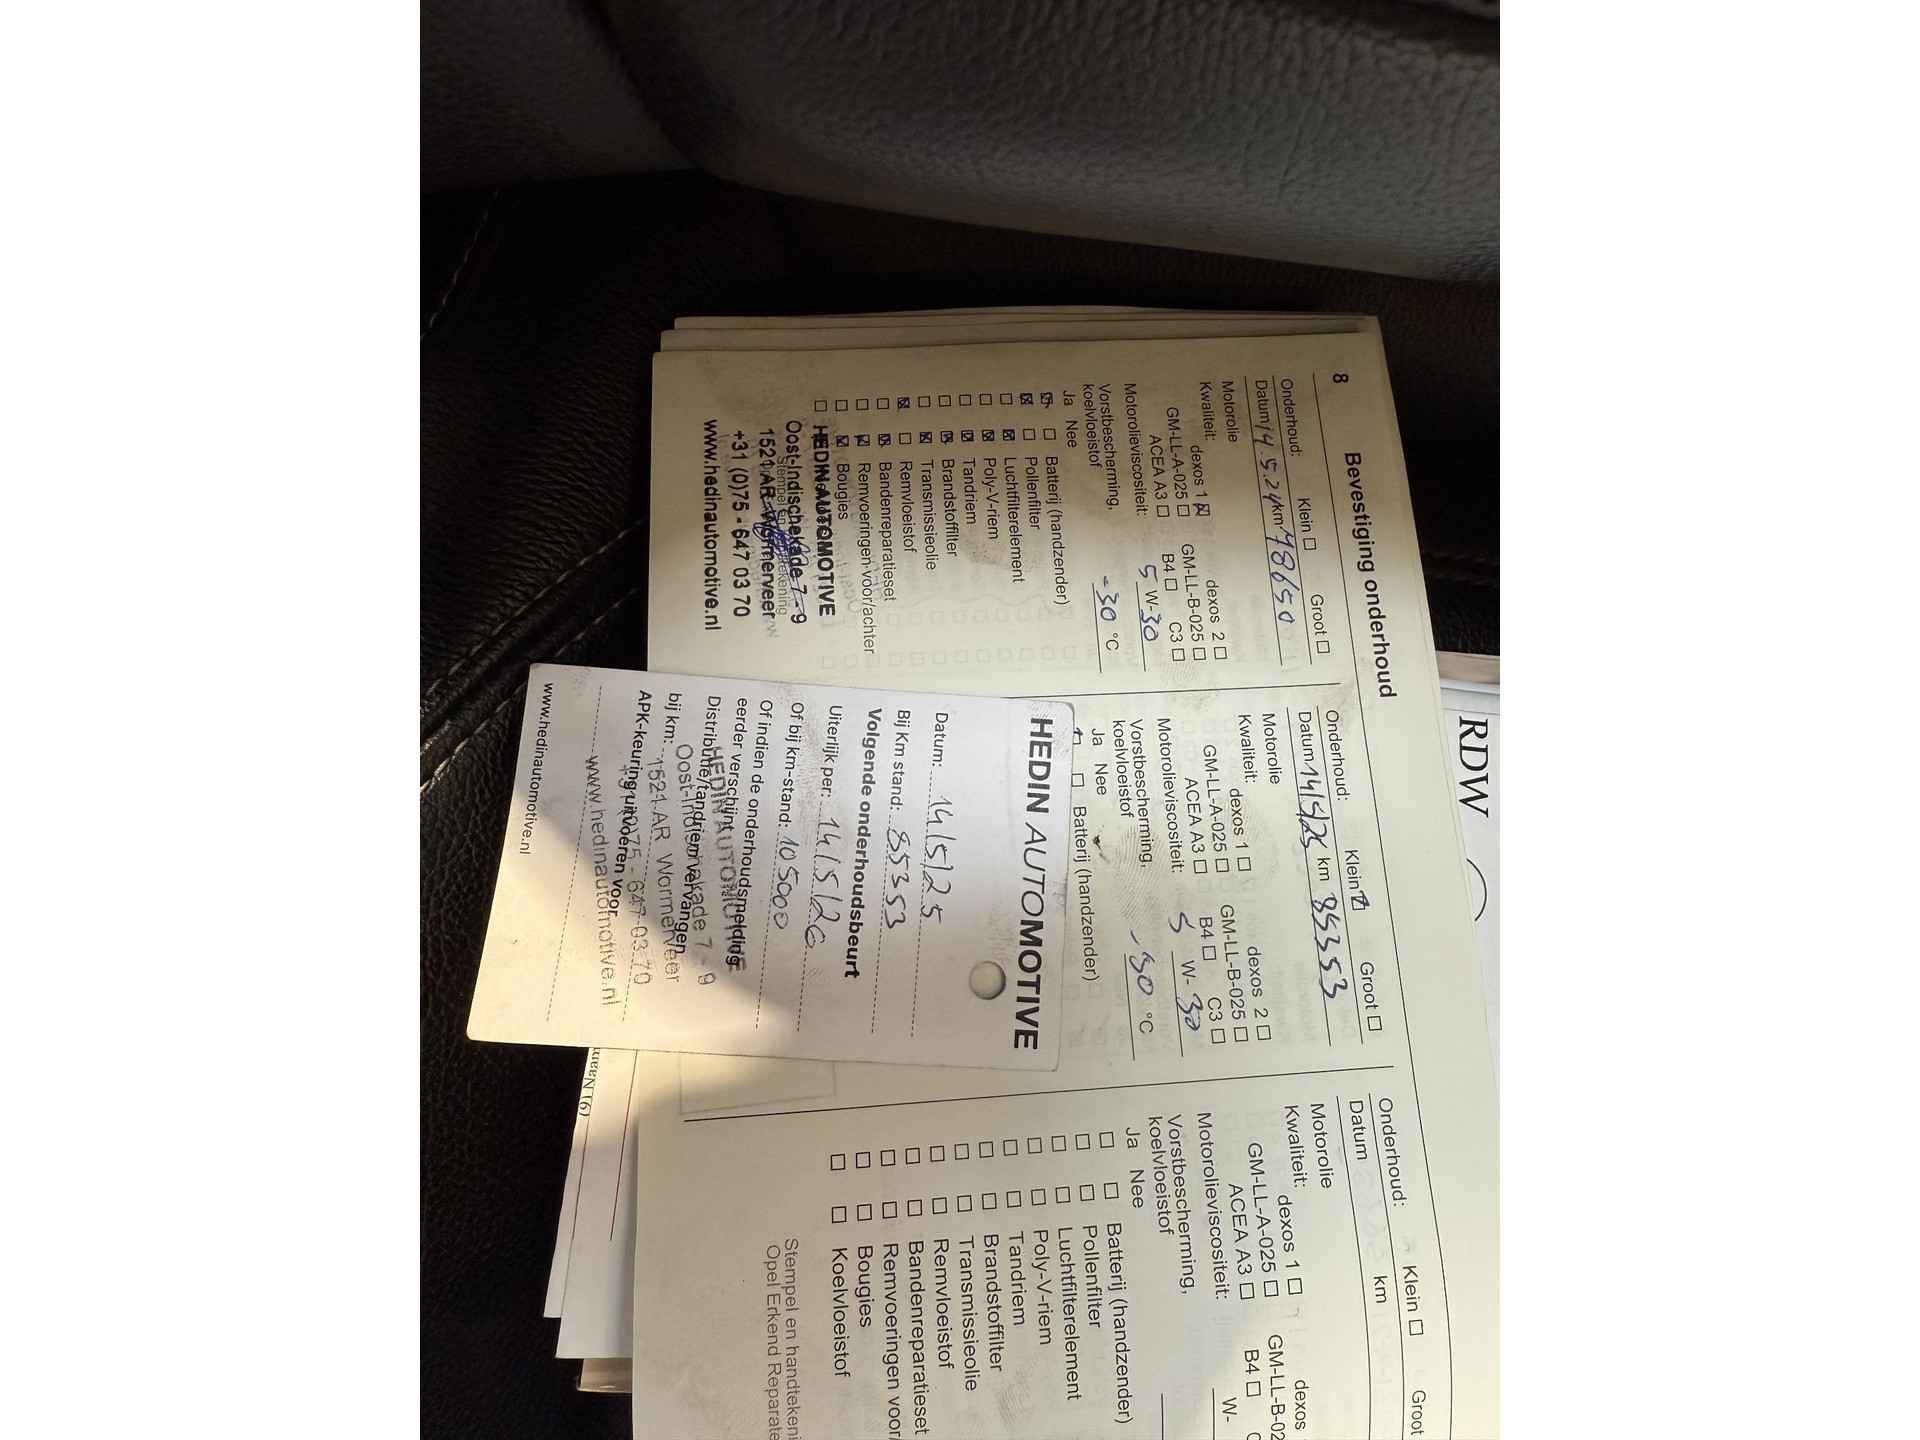 8 Bevestiging onderhoud
Onderhoud: Klein Groot
Datum 14.5.24 km 78650
Motorolie
Kwaliteit: dexos 1 dexos 2
GM-LL-A-025 GM-LL-B-025
ACEA A3 B4 C3
Motorolieviscositeit: 5 W-30
Vorstbescherming,
koelvloeistof -30 °C
Ja Nee
Batterij (handzender)
Pollenfilter
Luchtfilterelement
Poly-V-riem
Tandriem
Brandstoffilter
Transmissieolie
Remvloeistof
Bandenreparatieset
Remvoeringen voor/achter
Bougies
HEDIN AUTOMOTIVE
Oost-Indischekade 7 - 9
1521 AR Wormerveer
+31 (0)75 - 647 03 70
www.hedinautomotive.nl
Onderhoud: Klein Groot
Datum 14/5/25 km 85353
Motorolie
Kwaliteit: dexos 1 dexos 2
GM-LL-A-025 GM-LL-B-025
ACEA A3 B4 C3
Motorolieviscositeit: 5 W-30
Vorstbescherming,
koelvloeistof -30 °C
Ja Nee
Batterij (handzender)
HEDIN AUTOMOTIVE
Datum: 14/5/25
Bij Km stand: 85353
Volgende onderhoudsbeurt
Uiterlijk per: 14/5/26
Of bij km-stand: 105000
Of indien de onderhoudsmelding
eerder verschijnt
HEDIN AUTOMOTIVE
Distributie/tandriem vervangen
Oost-Indischekade 7 - 9
bij km:
1521 AR Wormerveer
APK-keuring uitvoeren voor
+31(0)75 - 647 03 70
www.hedinautomotive.nl
www.hedinautomotive.nl
Onderhoud: Klein Groot
Datum km
Motorolie
Kwaliteit: dexos 1 dexos
GM-LL-A-025 GM-LL-B-02
ACEA A3 B4 C
Motorolieviscositeit: W-
Vorstbescherming,
koelvloeistof
Ja Nee
Batterij (handzender)
Pollenfilter
Luchtfilterelement
Poly-V-riem
Tandriem
Brandstoffilter
Transmissieolie
Remvloeistof
Bandenreparatieset
Remvoeringen voor/
Bougies
Koelvloeistof
Stempel en handtekeni
Opel Erkend Reparate
RDW